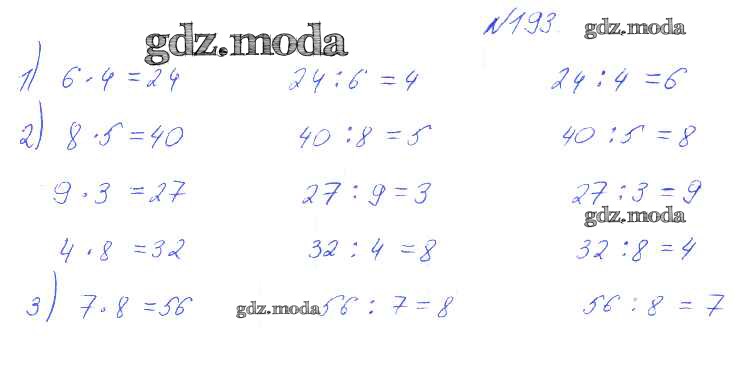 №193. gdz.moda
gdz.moda
1) 6 · 4 = 24 24 : 6 = 4 24 : 4 = 6
2) 8 · 5 = 40 40 : 8 = 5 40 : 5 = 8
9 · 3 = 27 27 : 9 = 3 27 : 3 = 9
gdz.moda
4 · 8 = 32 32 : 4 = 8 32 : 8 = 4
3) 7 · 8 = 56 gdz.moda 56 : 7 = 8 56 : 8 = 7